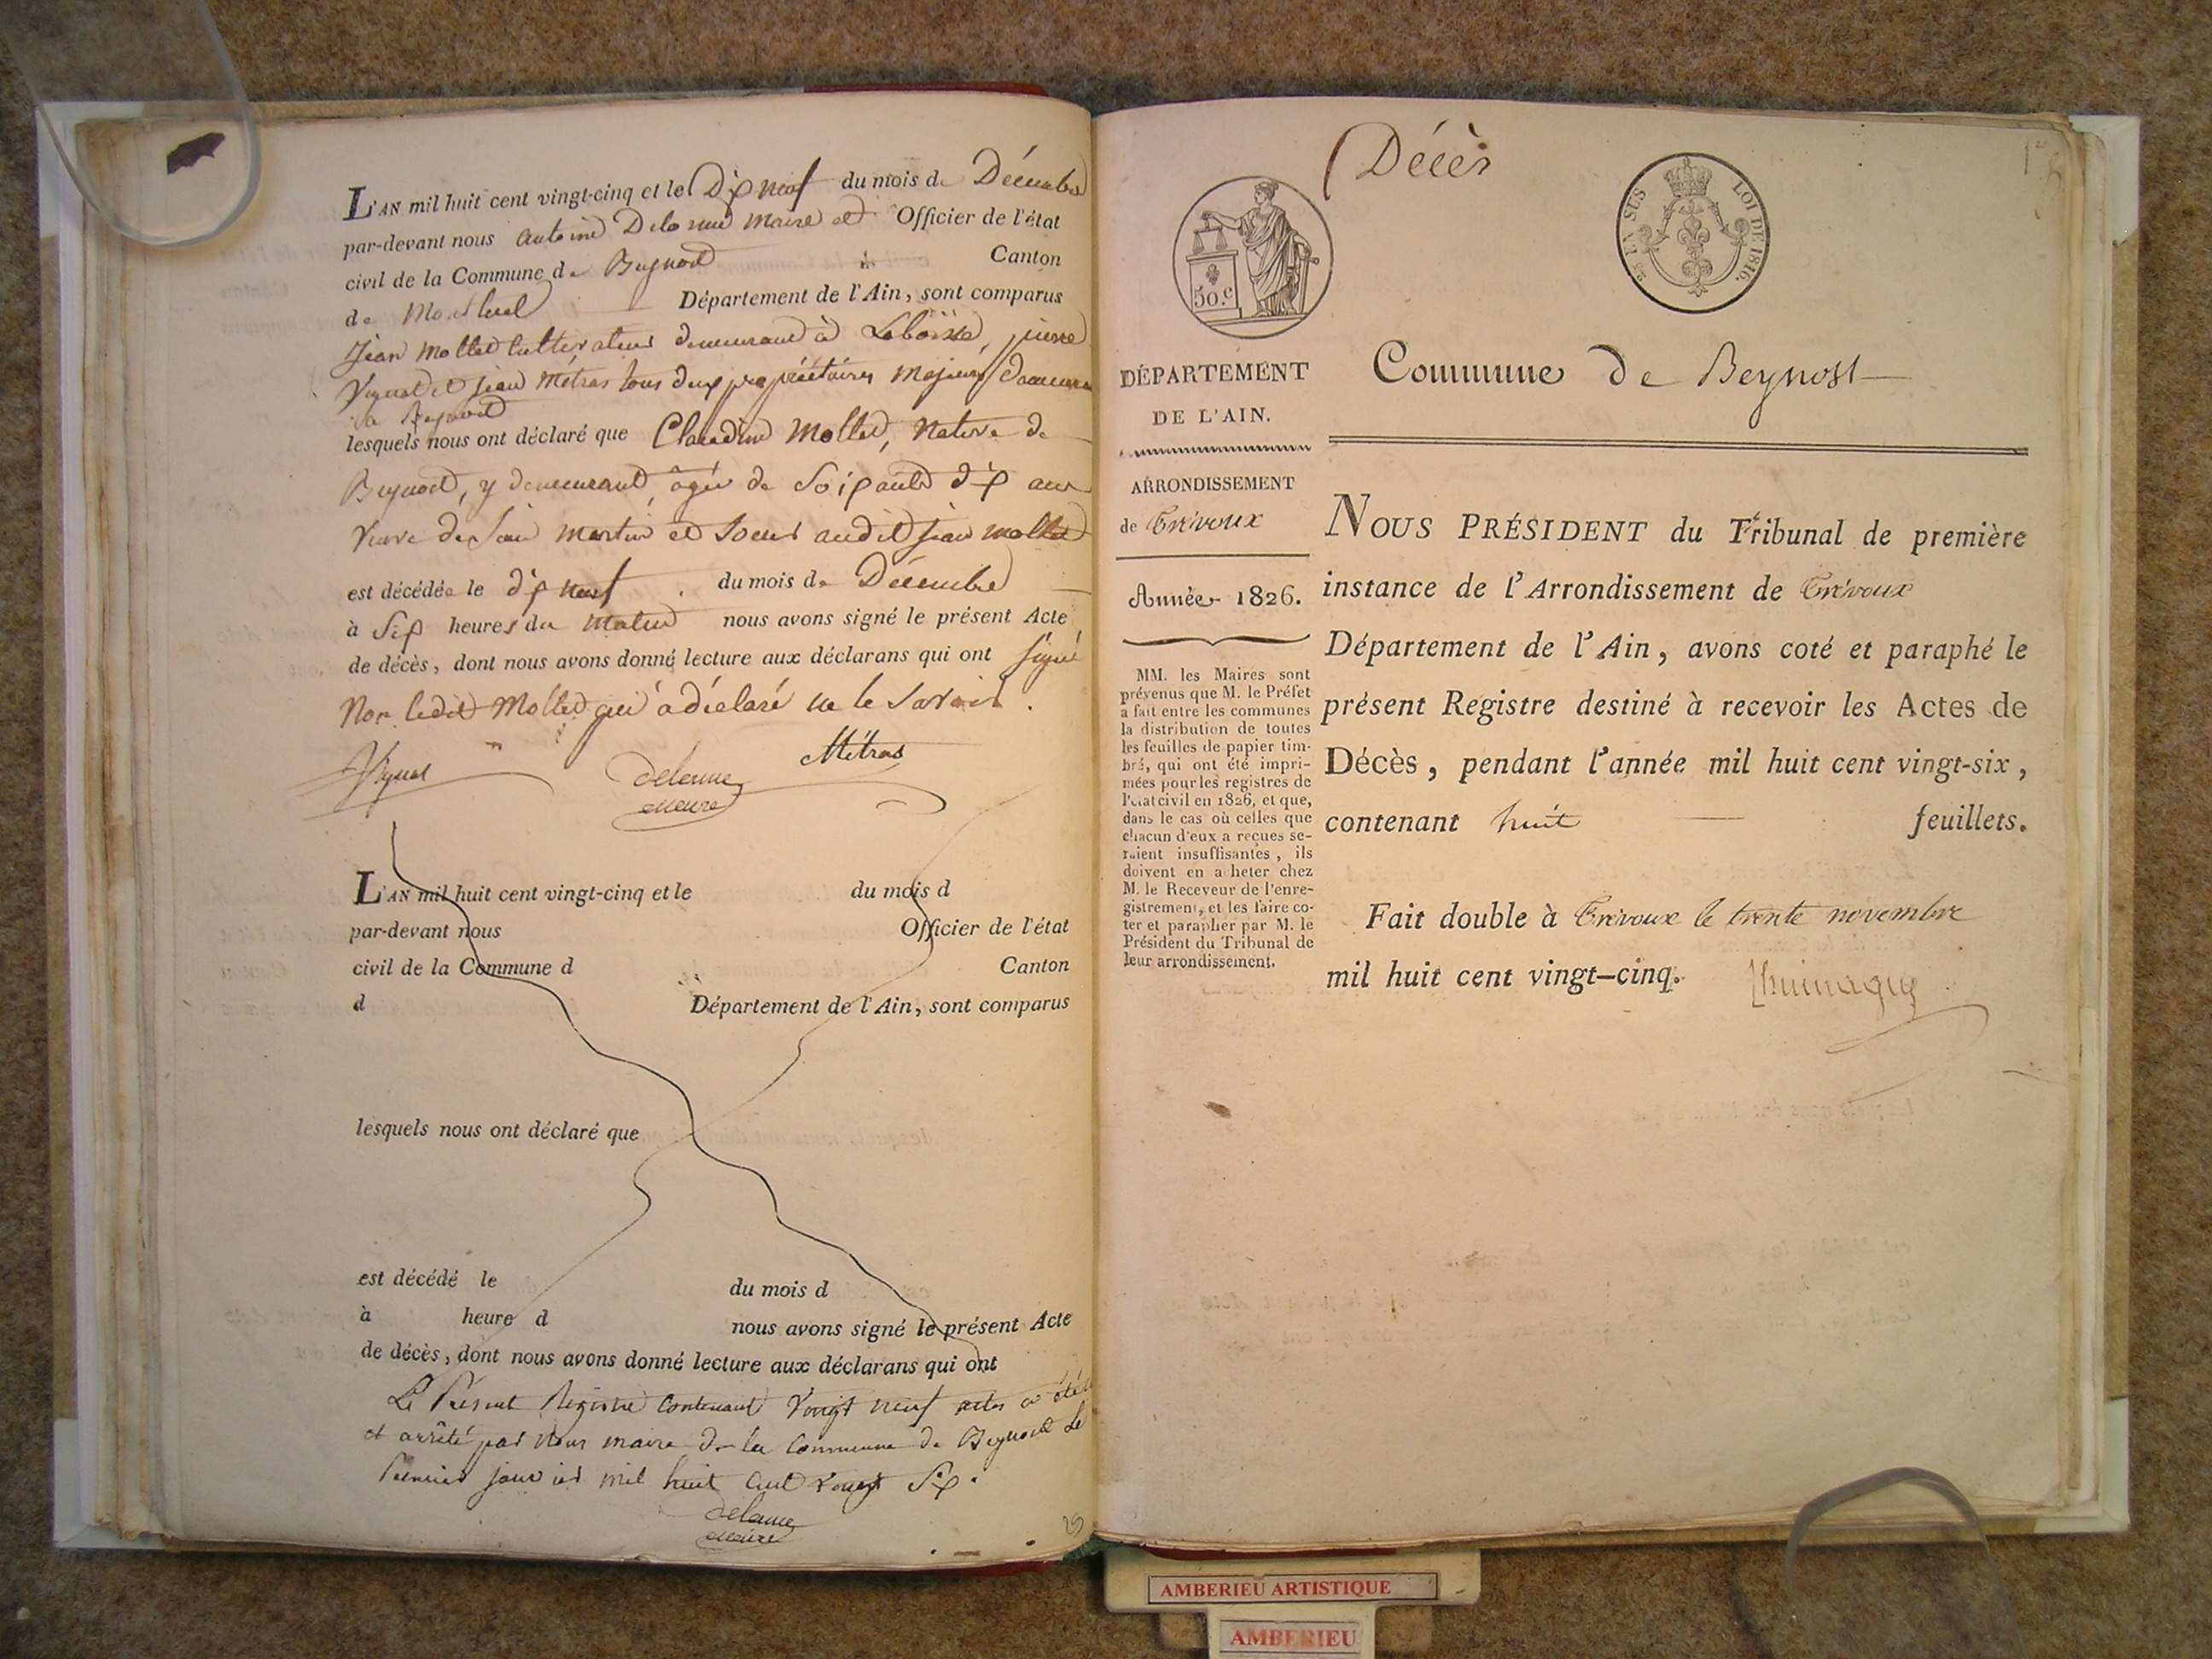 L'AN mil huit cent vingt-cinq et le Dix neuf du mois de Décembre
par-devant nous antoine Delorme maire et Officier de l'état
civil de la Commune de Beynost Canton
de Montluel Département de l'Ain, sont comparus
Jean Mollet cultivateur demeurant à Laboisse, pierre
Vignat et jean Métras tous deux propriétaires Majeurs demeurant
à Beynost
lesquels nous ont déclaré que Claudine Mollet, Native de
Beynost, y demeurant, âgée de Soixante dix ans
Veuve de Martin et Soeur audit jean mollet
est décédée le dix neuf du mois de Décembre
à Six heures du Matin nous avons signé le présent Acte
de décès, dont nous avons donné lecture aux déclarans qui ont signé
Non ledit Mollet qui a déclaré ne le Savoir.
Métras
Maire
L'AN mil huit cent vingt-cinq et le du mois d
par-devant nous Officier de l'état
civil de la Commune d Canton
d Département de l'Ain, sont comparus
lesquels nous ont déclaré que
est décédé le du mois d
à heure d nous avons signé le présent Acte
de décès, dont nous avons donné lecture aux déclarans qui ont
Le Présent Registre contenant Vingt neuf actes a été
et arrêté par Nous maire de la Commune de Beynost Le
Premier janvier mil huit cent vingt Six.
Maire
Décès
50.c
25 EN SUS LOI DE 1816.
Commune de Beynost
DÉPARTEMENT
DE L'AIN.
ARRONDISSEMENT
de Trévoux
Année 1826.
MM. les Maires sont
prévenus que M. le Préfet
a fait entre les communes
la distribution de toutes
les feuilles de papier tim-
bré, qui ont été impri-
mées pour les registres de
l'état civil en 1826, et que,
dans le cas où celles que
chacun d'eux a reçues se-
raient insuffisantes, ils
doivent en acheter chez
M. le Receveur de l'enre-
gistrement, et les faire co-
ter et parapher par M. le
Président du Tribunal de
leur arrondissement.
NOUS PRÉSIDENT du Tribunal de première
instance de l'Arrondissement de Trévoux
Département de l'Ain, avons coté et paraphé le
présent Registre destiné à recevoir les Actes de
Décès, pendant l'année mil huit cent vingt-six,
contenant huit feuillets.
Fait double à Trévoux le trente novembre
mil huit cent vingt-cinq.
AMBERIEU ARTISTIQUE
AMBERIEU